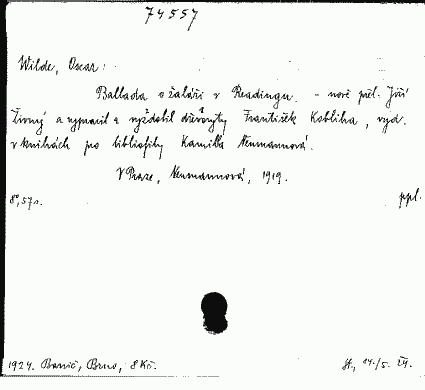 74557
Wilde, Oscar:
Ballada o žaláři v Readingu. - nově přel. Jiří
Živný a vypravil a vyzdobil dřevoryty František Kobliha, vyd.
v knihách pro bibliofily Kamilla Neumannová.
V Praze, Neumannová, 1919.
8°, 57 s.
ppl.
1924. Barvič, Brno, 8 Kč.
St., 14./5. 24.